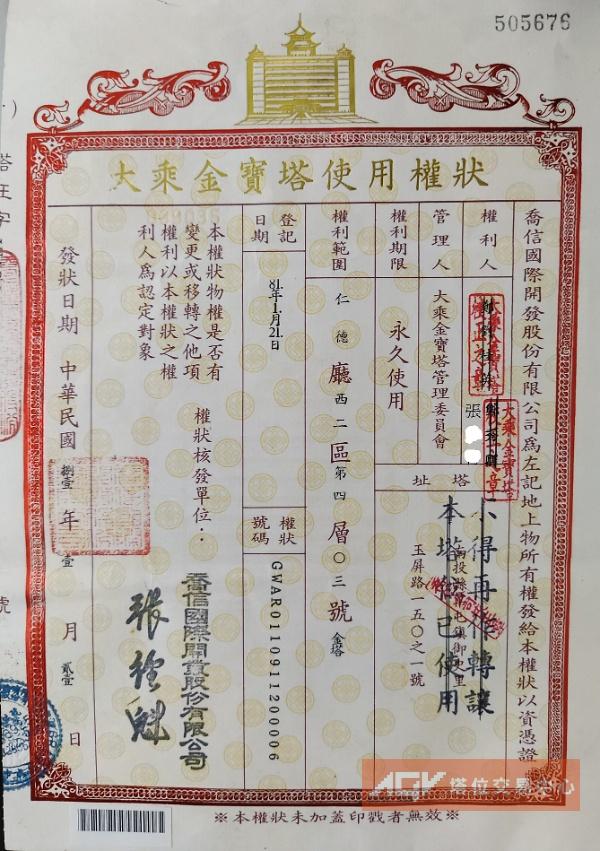 505676
大乘金寶塔使用權狀
喬信國際開發股份有限公司為左記地上物所有權發給本權狀以資憑證
權利人
張
管理人
大乘金寶塔管理委員會
塔址
玉屏路一五〇之一號
不得再作轉讓
本塔位已使用
權利期限
永久使用
權利範圍
仁德廳西二區第四層〇三號金塔
登記日期
81年1月21日
權狀號碼
GWAR0110911200006
本權狀物權是否有
變更或移轉之他項
權利以本權狀之權
利人為認定對象
權狀核發單位:
喬信國際開發股份有限公司
發狀日期 中華民國 捌壹 年 壹 月 貳壹 日
※本權狀未加蓋印戳者無效※
AGK 塔位交易中心